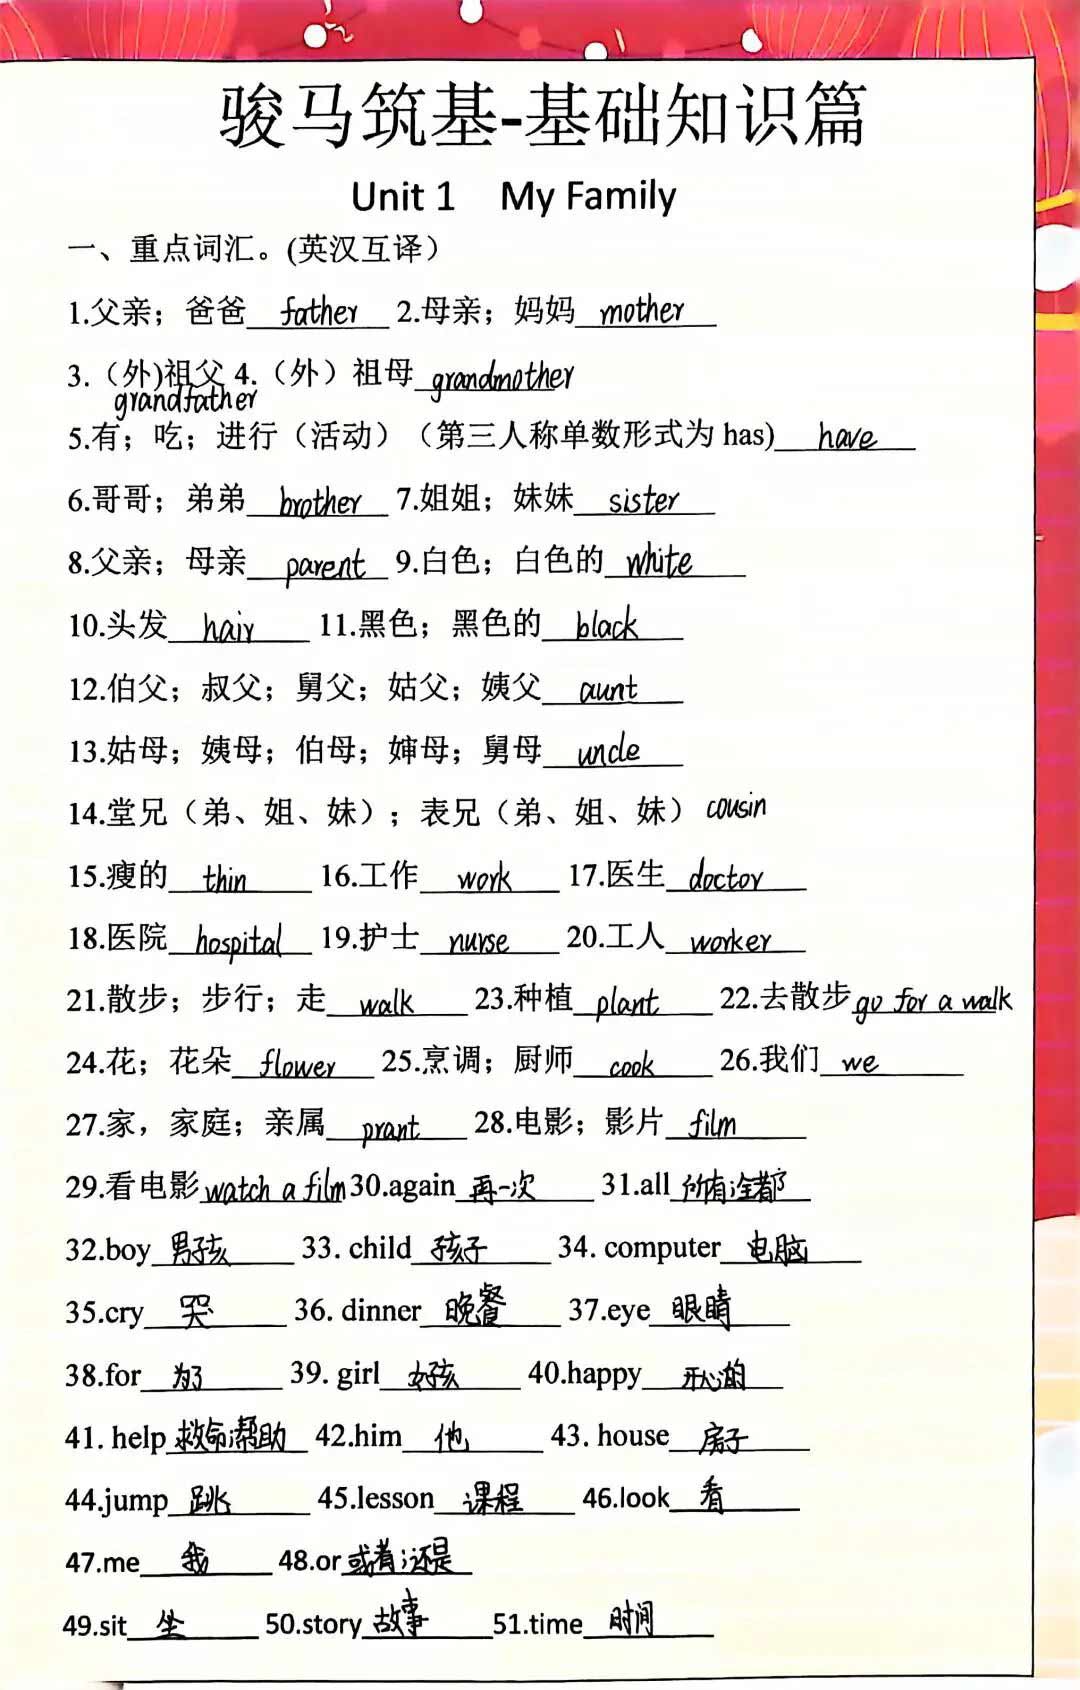 骏马筑基-基础知识篇
Unit 1 My Family
一、重点词汇。(英汉互译）
1.父亲；爸爸 father 2.母亲；妈妈 mother
3.（外)祖父 4.（外）祖母 grandmother
grandfather
5.有；吃；进行（活动）（第三人称单数形式为 has) have
6.哥哥；弟弟 brother 7.姐姐；妹妹 sister
8.父亲；母亲 parent 9.白色；白色的 white
10.头发 hair 11.黑色；黑色的 black
12.伯父；叔父；舅父；姑父；姨父 aunt
13.姑母；姨母；伯母；婶母；舅母 uncle
14.堂兄（弟、姐、妹）；表兄（弟、姐、妹） cousin
15.瘦的 thin 16.工作 work 17.医生 doctor
18.医院 hospital 19.护士 nurse 20.工人 worker
21.散步；步行；走 walk 23.种植 plant 22.去散步 go for a walk
24.花；花朵 flower 25.烹调；厨师 cook 26.我们 we
27.家，家庭；亲属 prant 28.电影；影片 film
29.看电影 watch a film 30.again 再一次 31.all 所有；全都
32.boy 男孩 33. child 孩子 34. computer 电脑
35.cry 哭 36. dinner 晚餐 37.eye 眼睛
38.for 为了 39. girl 女孩 40.happy 开心的
41. help 救命；帮助 42.him 他 43. house 房子
44.jump 跳 45.lesson 课程 46.look 看
47.me 我 48.or 或者；还是
49.sit 坐 50.story 故事 51.time 时间